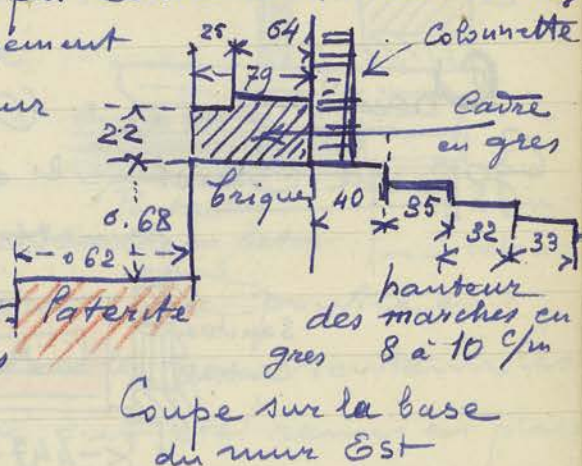 ement
25
64
Colonnette
79
ur
Cadre
en gres
22
brique
40
35
32
33
0.68
0 62
Laterite
hauteur
des marches en
gres 8 à 10 c/m
Coupe sur la base
du mur Est